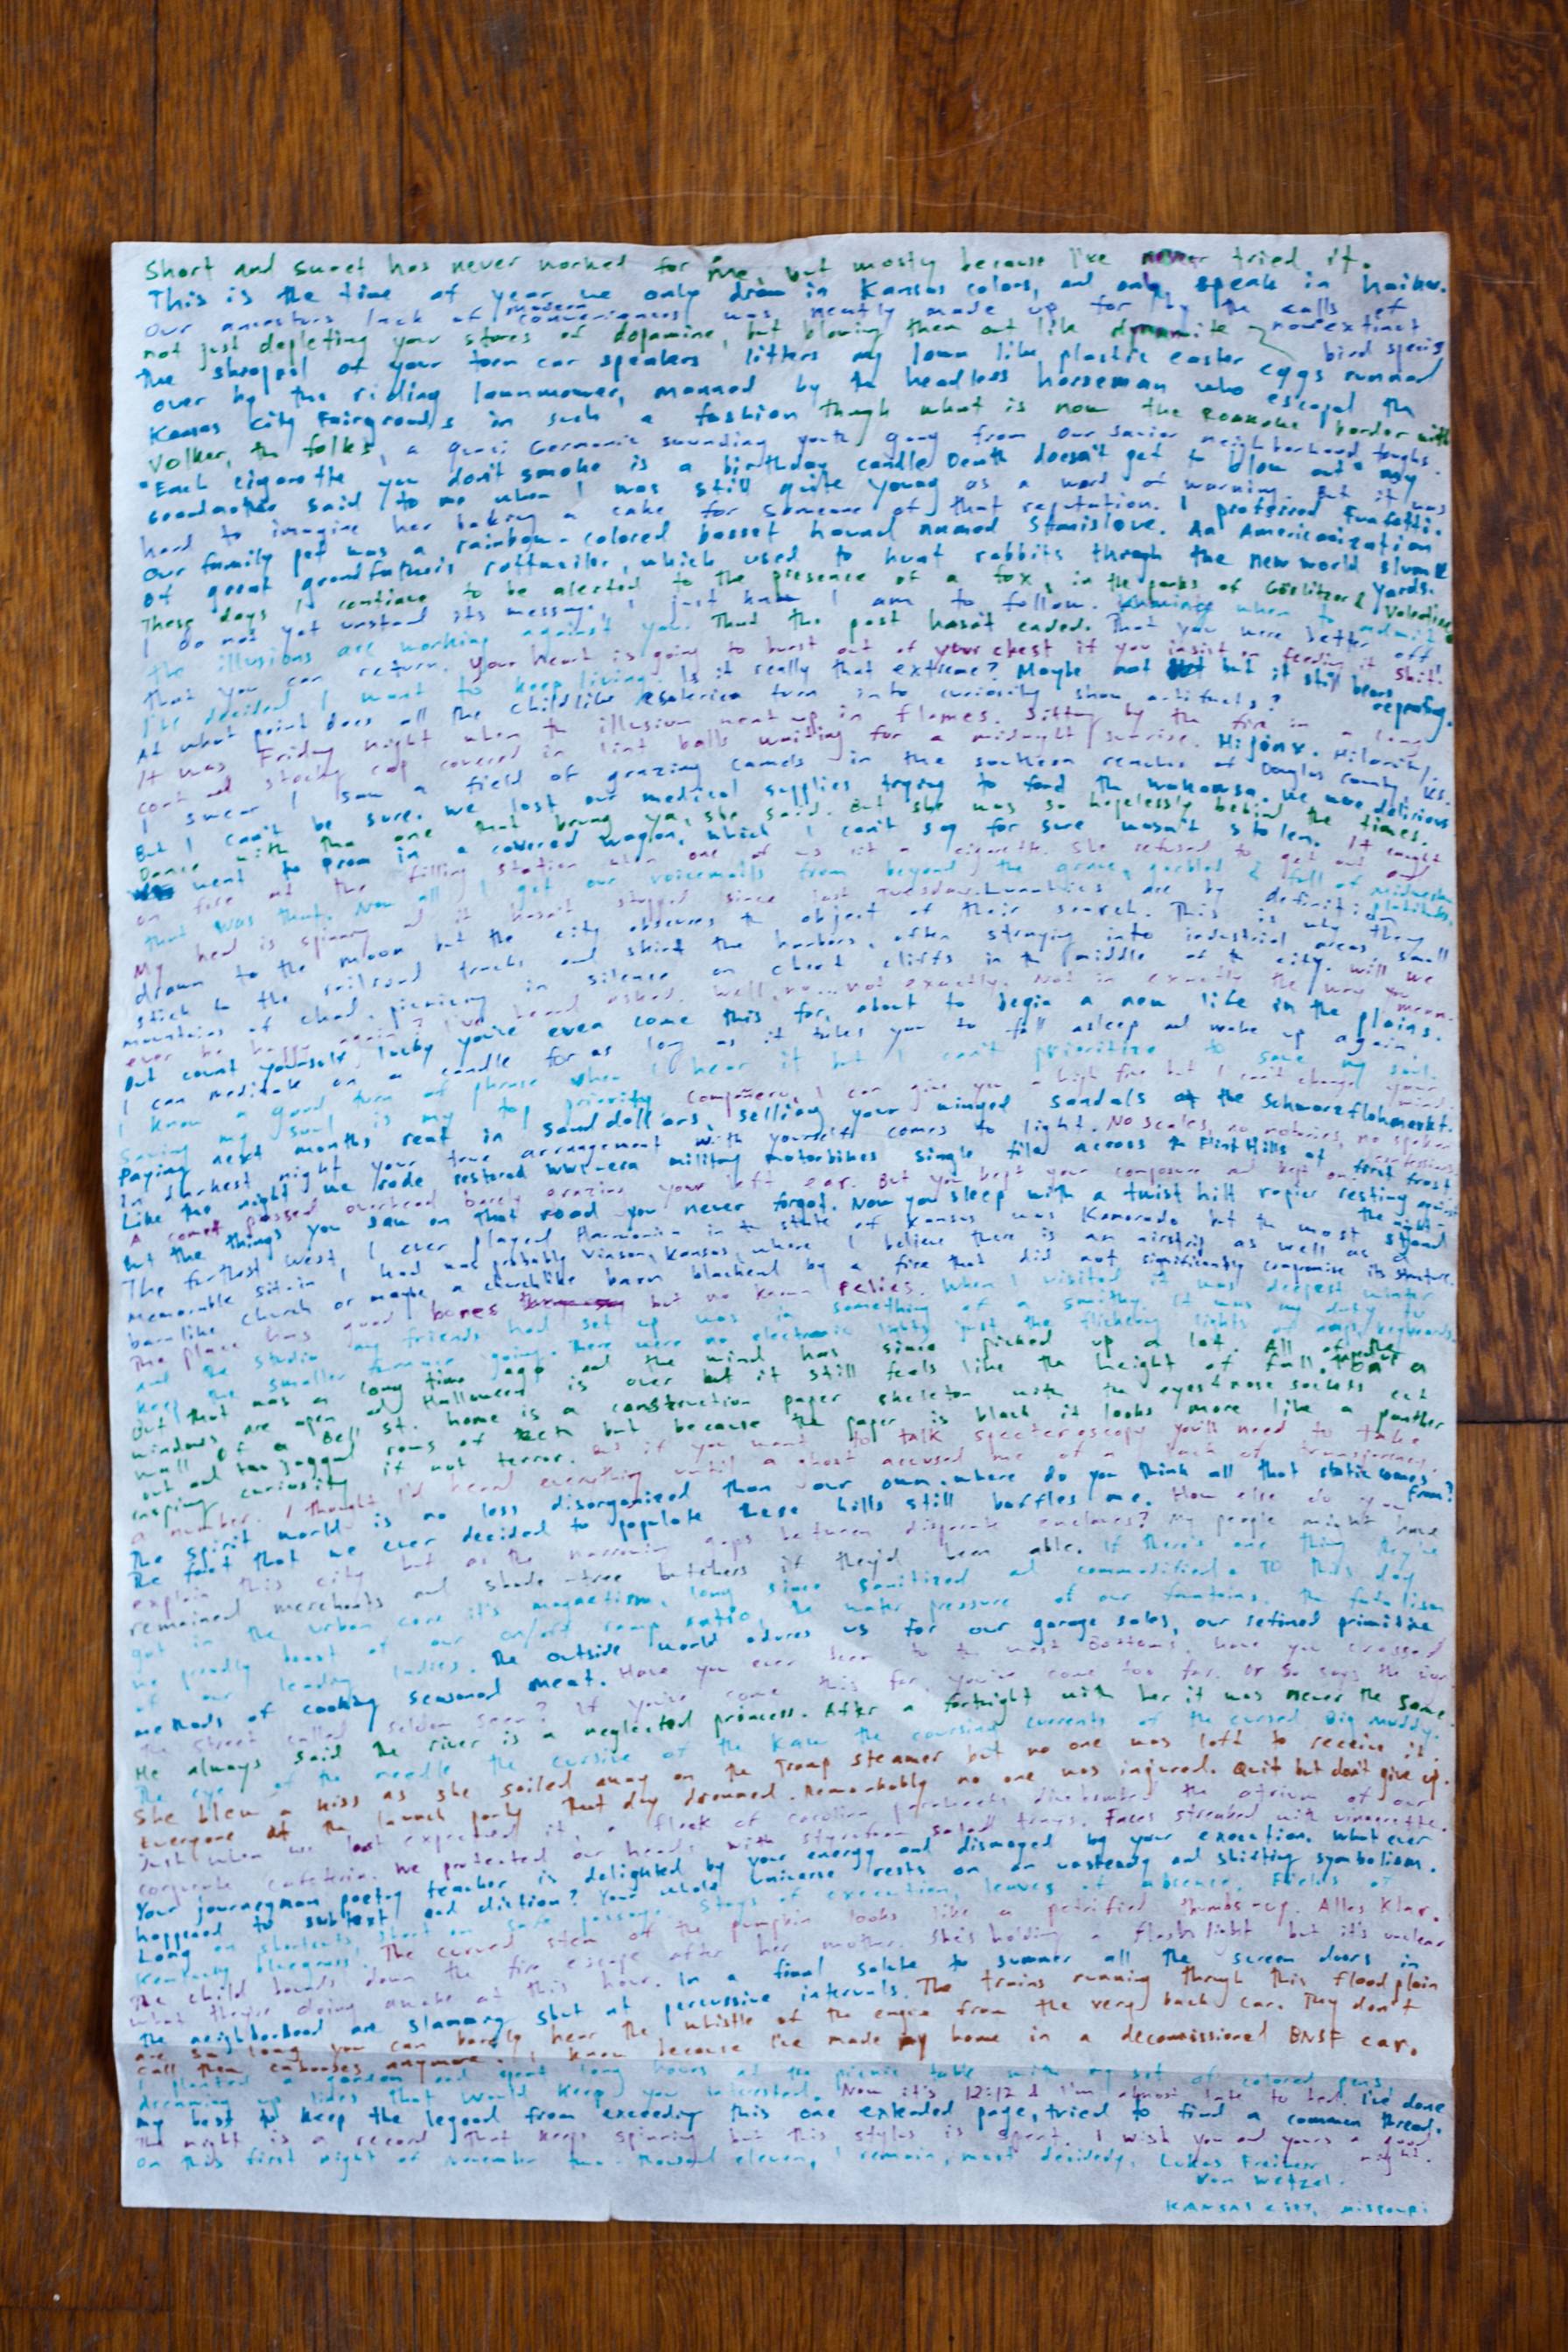 Short and sweet has never worked for me, but mostly because I've never tried it.
This is the time of year we only draw in Kansas colors, and only speak in haiku.
Our ancestors lack of modern conveniences was neatly made up for by the calls of now extinct bird species
not just depleting your stores of dopamine, but blowing them out like dynamite
The shrapnel of your torn car speakers litters my lawn like plastic easter eggs runned
over by the riding lawnmower, manned by the headless horseman who escaped the
Kansas City Fairgrounds in such a fashion though what is now the Roanoke border with
Volker, the folks, a quasi Germanic sounding youth gang from our savior neighborhood toughs.
"Each cigarette you don't smoke is a birthday candle Death doesn't get to blow out" my
Grandmother said to me when I was still quite young as a word of warning. But it was
hard to imagine her baking a cake for someone of that reputation. I preferred Funfetti.
Our family pet was a rainbow-colored basset hound named Stanislove. An Americanization
of great grandfather's rottweiler, which used to hunt rabbits through the new world slum yards.
These days I continue to be alerted to the presence of a fox, in the parks of Görlitzer & Valentine
I do not yet unstand its message, I just know I am to follow. Knowing when to admit
the illusions are working against you. That the past hasn't ended. That you were better off
that you can return. Your heart is going to burst out of your chest if you insist on feeding it shit!
I've decided I want to keep living. Is it really that extreme? Maybe not but it still bears repeating.
At what point does all the childlike esoterica turn into curiosity show artifacts?
It was Friday night when the illusion went up in flames. Sitting by the fire in a long
coat and stocking cap covered in lint balls waiting for a midnight sunrise. Hijinx. Hilarity.
I swear I saw a field of grazing camels in the southern reaches of Douglas County, KS.
But I can't be sure. We lost our medical supplies trying to ford the wakarusa. We were delirious
Dance with the one that brung ya, she said. But she was so hopelessly behind the times.
went to prom in a covered wagon, which I can't say for sure wasn't stolen. It caught
on fire at the filling station when one of us lit a cigarette. She refused to get out and
that was that. Now all I get our voicemails from beyond the grave, garbled & full of Midwestern platitudes.
My head is spinning and it hasn't stopped since last Tuesday. Lunatics are by definition
drawn to the moon but the city obscures the object of their search. This is why they
stick to the railroad tracks and skirt the harbors, often straying into industrial areas, small
mountains of chad, picnicing in silence on chert cliffs in the middle of the city. Will we
ever be happy again? I've heard asked. Well, no... not exactly. Not in exactly the way you mean.
But count yourself lucky you've even come this far, about to begin a new life in the plains.
I can meditate on a candle for as long as it takes you to fall asleep and wake up again.
I know a good turn of phrase when I hear it but I can't prioritize to save my soul.
Saving my soul is my top priority compañero, I can give you a high five but I can't change your mind.
Paying next months rent in sand dollars, selling your winged sandals at the Schwarzflohmarkt.
In darkest night your true arrangement with yourself comes to light. No scales, no notaries, no spoken confessions.
Like the night we rode restored WWI-era military motorbikes single file across the Flint Hills at first frost
A comet passed overhead barely grazing your left ear. But you kept your composure and kept on.
But the things you saw on that road you never forgot. Now you sleep with a twist hilt rapier resting against the night-stand
The furthest west I ever played Harmonica in the state of Kansas was Kanorado but the most
memorable sit-in I had was probably Vinson, Kansas, where I believe there is an airstrip as well as a
barnlike church or maybe a churchlike barn blackend by a fire that did not significantly compromise its structure.
The place has good bones but no known relics. When I visited it was deepest winter
and the studio my friends had set up was in something of a smithy. It was my duty to
keep the smaller furnace going. There were no electronic lights just the flickering lights of amps, keyboards.
But that was a long time ago and the wind has since picked up a lot. All of the
windows are open and Halloween is over but it still feels like the height of fall. Taped to a
wall of a Bell St. home is a construction paper skeleton with the eyes & nose sockets cut
out and two jagged rows of teeth but because the paper is black it looks more like a panther
inspiring curiosity if not terror. As if you want to talk specteroscopy you'll need to take
a number. I thought I'd heard everything until a ghost accused me of a lack of transparency.
The spirit world is no less disorganized than our own. Where do you think all that static comes from?
The fact that we ever decided to populate these hills still baffles me. How else do you
explain this city but as the narrowing gaps between disparate enclaves? My people might have
remained merchants and shade-tree butchers if they'd been able. If there's one thing they've
got in the urban core it's magnetism, long since sanitized and commodified. To this day
we proudly boast of our on/off ramp ratio, the water pressure of our fountains. The fatalism
of our leading ladies. The outside world adores us for our garage sales, our refined primitive
methods of cooking seasoned meat. Have you ever been to the West Bottoms. Have you crossed
the street called Seldom Seen? If you've come this far, you've come too far. Or so says the
He always said the river is a neglected princess. After a fortnight with her it was never the same.
The eye of the needle the cursive of the Kaw the coursing currents of the cursed Big Muddy.
She blew a kiss as she sailed away on the tramp steamer but no one was left to receive it.
Everyone at the launch party that day drowned. Remarkably no one was injured. Quit but don't give up.
Just when we least expected it, a flock of carolina parakeets divebombed the atrium of our
corporate cafeteria. We protected our heads with styrofoam salad trays. Faces streaked with vinaigrette.
Your journeyman poetry teacher is delighted by your energy and dismayed by your execution. What ever
happened to subtext and diction? Your whole universe rests on an unsteady and shifting symbolism.
Long on shortcuts, short on safe passage. Stays of execution, leaves of absence. Fields of
Kentucky bluegrass. The curved stem of the pumpkin looks like a petrified thumbs-up. Alles Klar.
The child bounds down the fire escape after her mother. She's holding a flashlight but it's unclear
what they're doing awake at this hour. In a final salute to summer all the screen doors in
the neighborhood are slamming shut at percussive intervals. The trains running through this floodplain
are so long you can barely hear the whistle of the engine from the very back car. They don't
call them cabooses anymore. I know because I've made my home in a decomissioned BNSF car.
I planted a garden and spent long hours at the picnic table with my set of colored pens,
dreaming up lides that would keep you interested. Now it's 12:12 & I'm almost late to bed. I've done
my best to keep the legend from exceeding this one extended page, tried to find a common thread.
The night is a record that keeps spinning but this stylus is spent. I wish you and yours a good night.
On this first night of November two-thousand eleven, I remain, most decidedly, Lukas Freiherr
von Wetzel.
Kansas City, Missouri